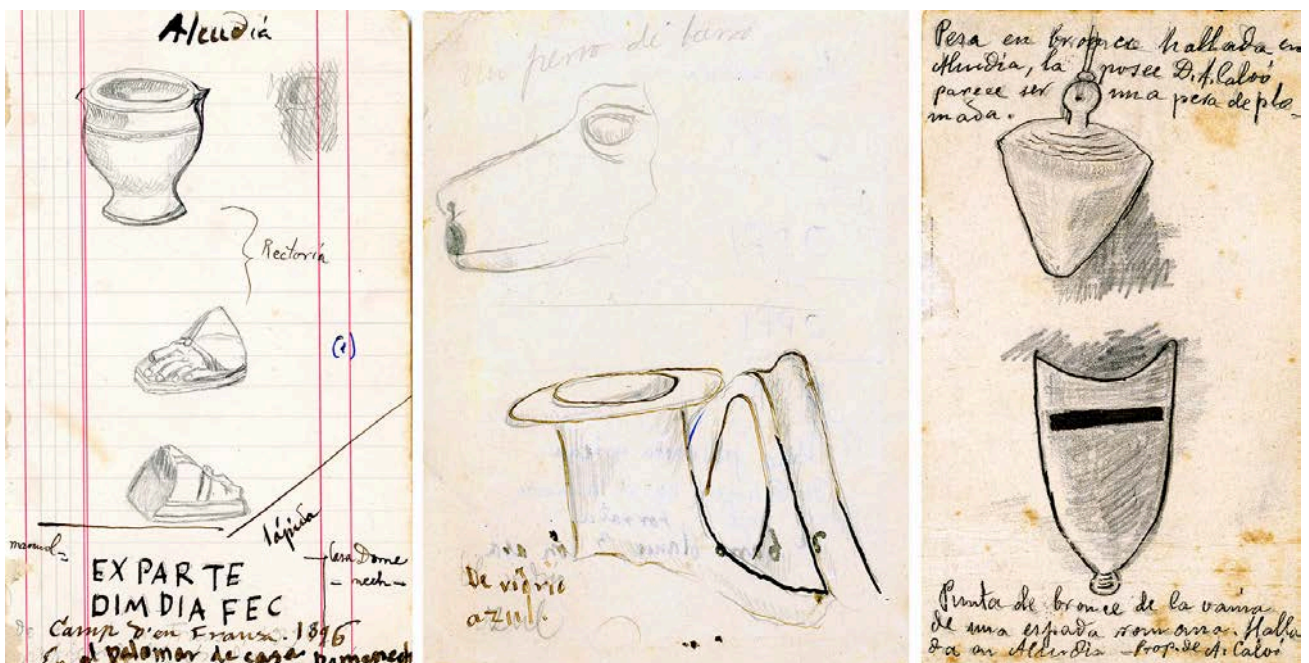 Alcudiá
Rectoría
(e)
lápida
manual=
Casa Dome
- nech -
EX PARTE
DIM DIA FEC
Camp d'en Fransa. 1896
En el palomar de casa Domenech
un perro de barro
De vidrio
azul.
Pesa en bronce hallada en
Alcudia, la posee D. A. Calvó
parece ser una pesa de plo-
mada.
Punta de bronce de la vaina
de una espada romana. Halla
da en Alcudia - Prop. de A. Calvó